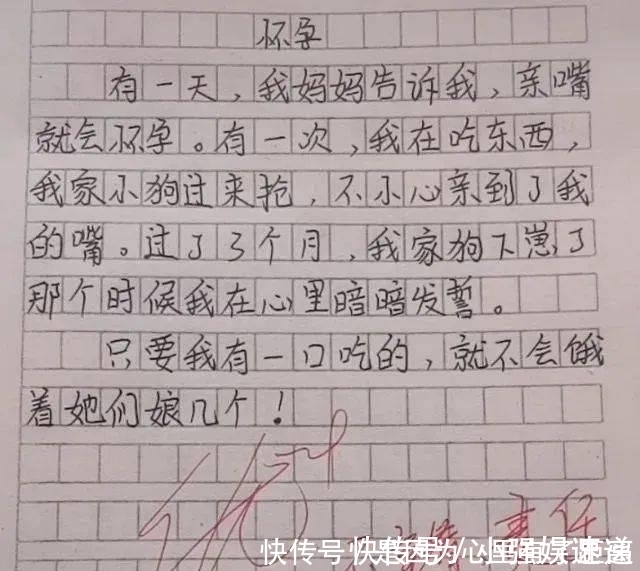 怀孕
有一天，我妈妈告诉我，亲嘴
就会怀孕。有一次，我在吃东西，
我家小狗过来抢，不小心亲到了我
的嘴。过了3个月，我家狗下崽了
那个时候我在心里暗暗发誓。
只要我有一口吃的，就不会饿
着她们娘几个！
快传号